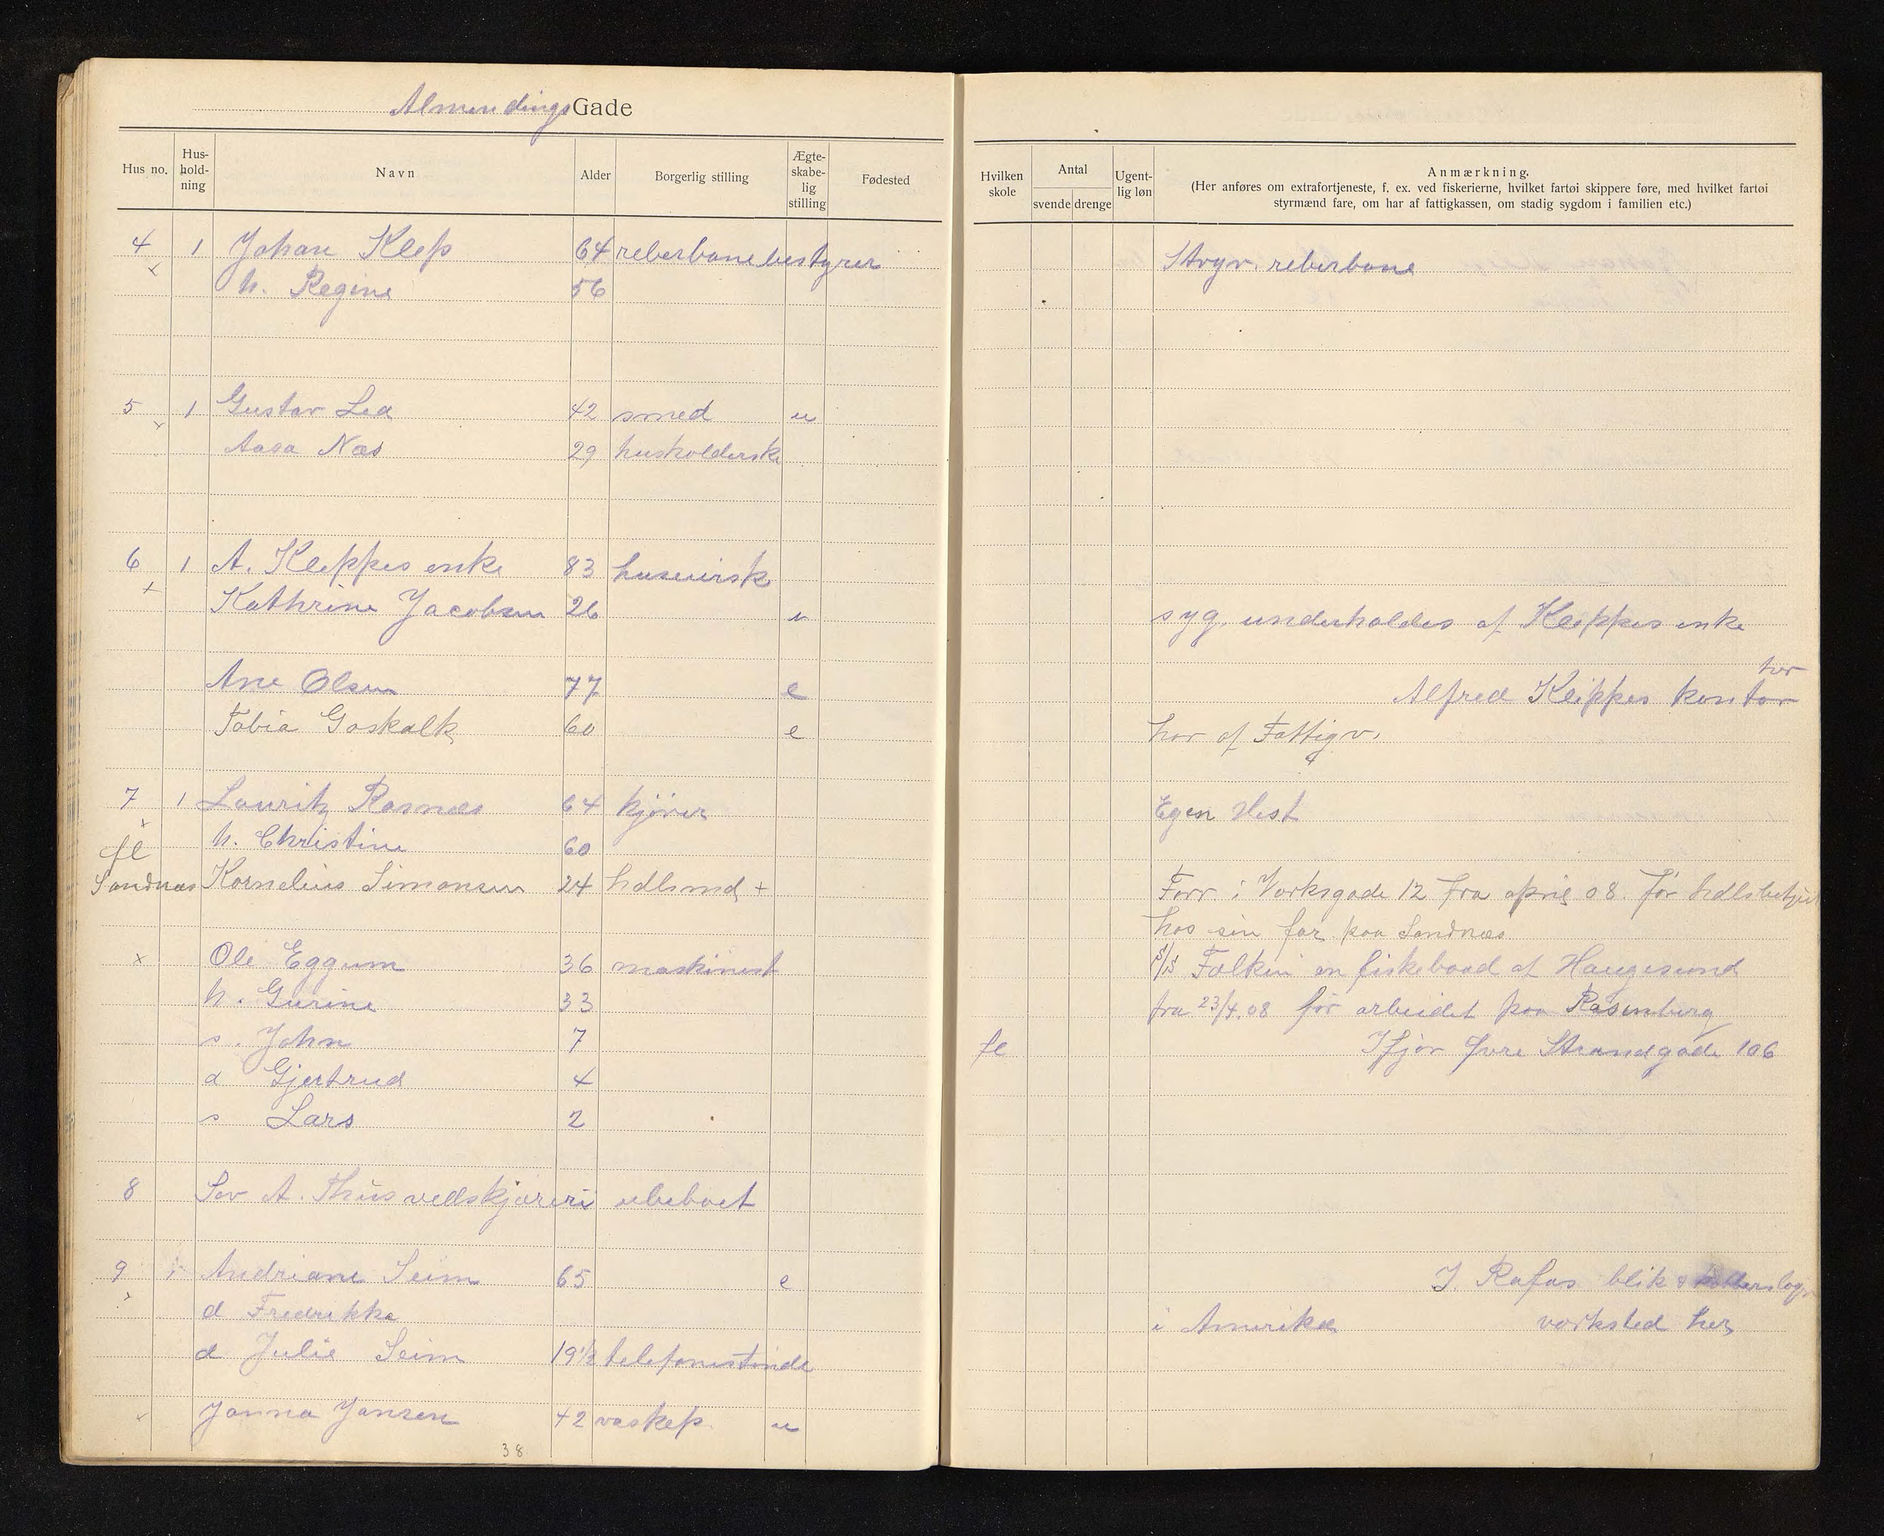 Almendings Gade
Hus no. Hus-hold-ning Navn Alder Borgerlig stilling Ægte-skabe-lig stilling Fødested
Hvilken skole Antal svende drenge Ugent-lig løn Anmærkning.
(Her anføres om extrafortjeneste, f. ex. ved fiskerierne, hvilket fartøi skippere føre, med hvilket fartøi
styrmænd fare, om har af fattigkassen, om stadig sygdom i familien etc.)
4 1 Johan Klep 64 reberbanebestyrer Stvgv. reberbane
x h. Regine 56
5 1 Gustav Lea 42 smed u
x Aasa Næs 29 husholderske
6 1 A. Kleppes enke 83 huseiersk
+ Kathrine Jacobsen 26 u syg, underholdes af Kleppes enke
Ane Olsen 77 e Alfred Kleppes kontor her
Tobia Goskalk 60 e har af Fattigv.
7 1 Lauritz Rasnæs 64 kjører Egen Hest
x h. Christine 60
fl
Sandnæs Kornelius Simonsen 24 hdlsmd + Forr. i Verksgade 12 fra april 08. før hdlsbetjent
hos sin far paa Sandnæs
x Ole Eggum 36 maskinist S/S Falken en fiskebaad af Haugesund
h. Gurine 33 fra 23/4.08 før arbeidet paa Rosenberg
s. John 7 fl Ifjor Øvre Strandgade 106
d Gjertrud 4
s Lars 2
8 Sev A. Thüs vedskjæreri ubeboet
9 1 Andriane Seim 65 e J. Rafos blik &
x d Fredrikke i Amerika verksted her
d Julie Seim 19½ telefonistinde
x Janna Jansen 42 vaskep. u
38